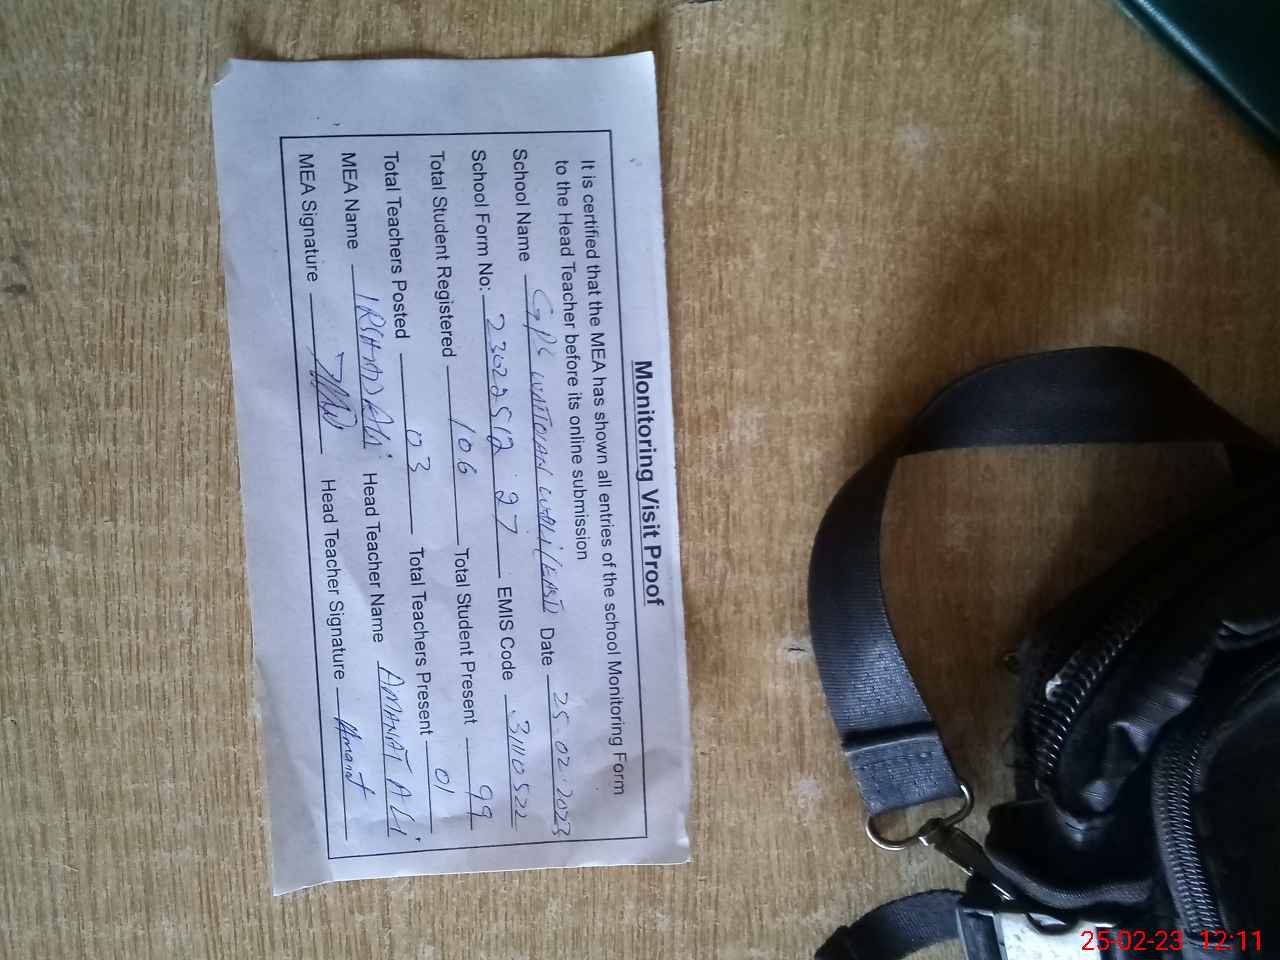 Monitoring Visit Proof
It is certified that the MEA has shown all entries of the school Monitoring Form
to the Head Teacher before its online submission
School Name GPS WALI (EAST) Date 25.02.2023
School Form No: 23022512 27 EMIS Code 31110522
Total Student Registered 106 Total Student Present 99
Total Teachers Posted 03 Total Teachers Present 01
MEA Name IRSHAD ALI Head Teacher Name AMANAT ALI
MEA Signature Head Teacher Signature Amanat
25-02-23 12:11